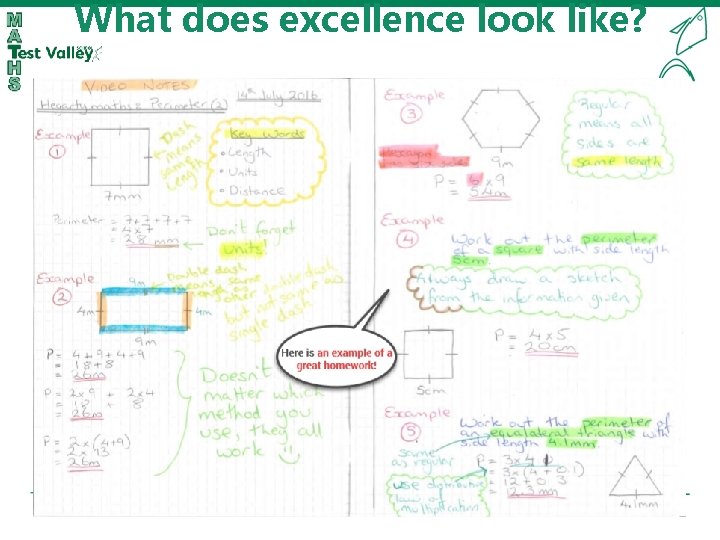 What does excellence look like?
MATHS
Test Valley
VIDEO NOTES
14th July 2016
Hegartymaths: Perimeter (2)
Example
1
7mm
Dash
means
same
length
Key Words
Length
Units
Distance
Perimeter = 7+7+7+7
= 4×7
= 28 mm
Don't forget
units!
Example
2
4m
4m
4m
9m
Double dash
means same
length as
other double dash
but not same as
single dash
P = 4+9+4+9
= 18+8
= 26m
P = 2×9 + 2×4
= 18 + 8
= 26m
P = 2×(4+9)
= 2×13
= 26m
Doesn't
matter which
method you
use, they all
work
Here is an example of a
great homework!
Example
3
9m
Hexagon
P = 6×9
= 54m
Regular
means all
sides are
same length
Example
4
Work out the perimeter
of a square with side length
5cm.
Always draw a sketch
from the information given
5cm
P = 4×5
= 20cm
Example
5
Work out the perimeter of
an equalateral triangle with
side length 4.1mm.
same
as regular
use distributive
law of
multiplication
P = 3×4
= 3×(4+0.1)
= 12+0.3
4.1mm